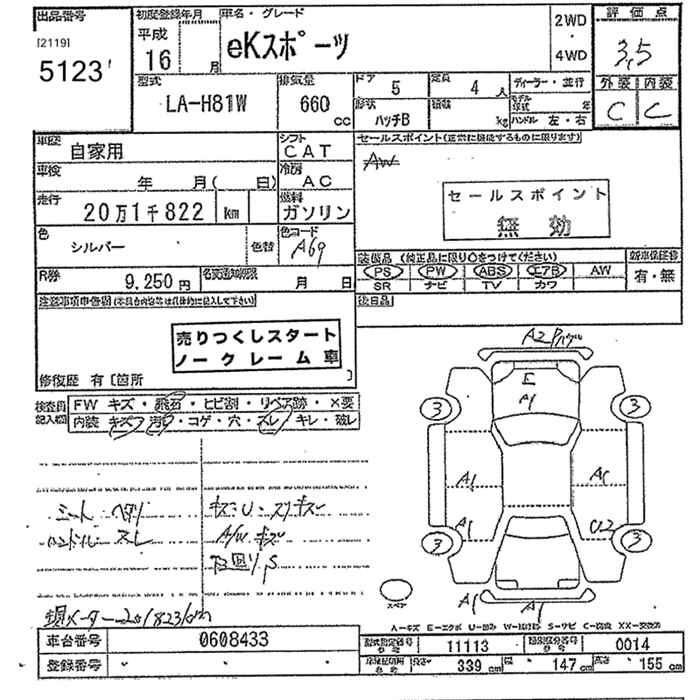 出品番号 初度登録年月 車名・グレード 2WD 評価点
[2119] 平成 ・
5123 16 月 eKスポーツ 4WD 3.5
型式 排気量 ドア 5 定員 4 人 ディーラー・並行 外装 内装
LA-H81W 660 cc 形状 ハッチB 積載 kg モデル年式 年 C C
ハンドル 左・右
車歴 自家用 シフト CAT セールスポイント(正常に機能するものに限ります)
車検 年 月( 日) 冷房 AC AW
走行 20万1千822 km 燃料 ガソリン セールスポイント
無効
色 シルバー 色替 色コード A69
装備品 (純正品に限り○をつけてください) 新車保証書
PS PW ABS エアB AW 有・無
R券 9,250円 名変通知期限 月 日 SR ナビ TV カワ
注意事項申告欄(本具合内容等は具体的に記入して下さい) 後日品
売りつくしスタート
ノークレーム車
修復歴 有〔箇所 〕
検査員記入欄 FW キズ・飛石・ヒビ割・リペア跡・X要
内装 キズ・汚れ・コゲ・穴・スレ・キレ・破レ
A2
E
A1
3 3
A1 A1
A1 U2
3 3
シート ヘタリ キズ・U・スリキズ
ハンドル スレ A/Wキズ
下回りS
現メーター201823km
スペア
A1 A1
A-キズ E-エクボ U-凹み W-補修跡 S-サビ C-腐食 XX-交換済
車台番号 0608433 型式指定番号 11113 類別区分番号 0014
登録番号 長さ 339 cm 幅 147 cm 高さ 155 cm